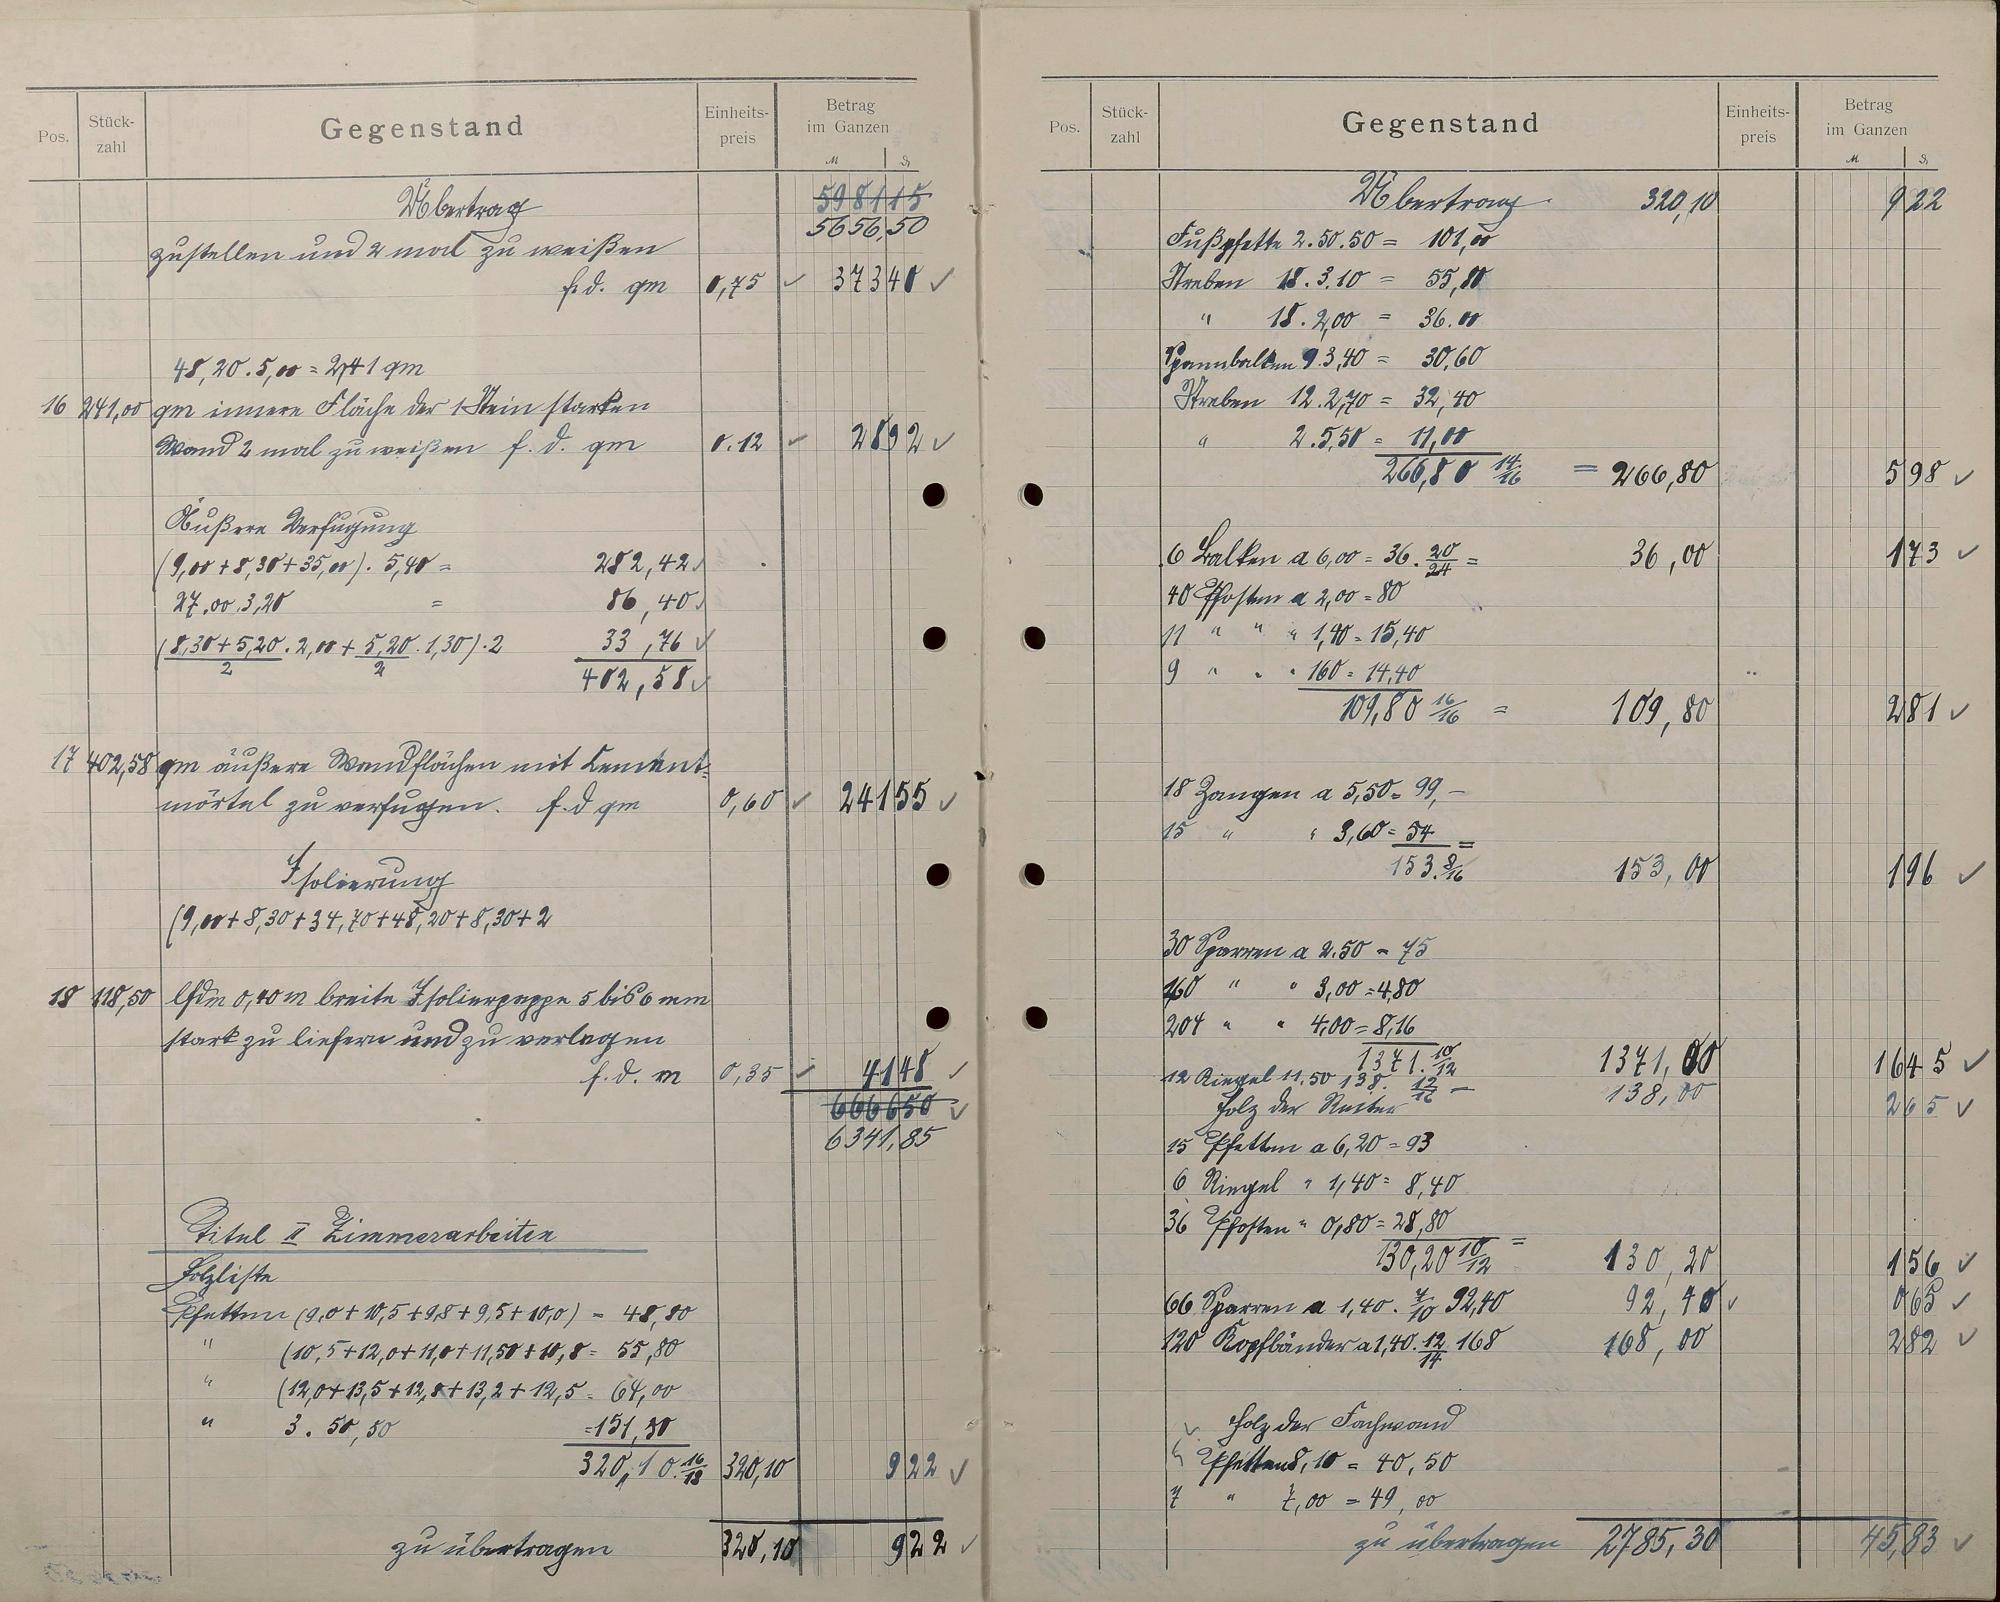 Pos.
Stück-
zahl
Gegenstand
Einheits-
preis
Betrag
im Ganzen
M
₰
Übertrag 598115
5656,50
zustellen und 2 mal zu weißen
f. d. qm 0,75 373 40
48,20 . 5,00 = 241 qm
16 241,00 qm innere Fläche der 1 Stein starken
Wand 2 mal zu weißen f. d. qm 0.12 28 92
Äußere Verfugung
(9,00 + 8,30 + 35,00) . 5,40 = 282,42
27,00 . 3,20 = 86,40
(8,30 + 5,20 / 2 . 2,00 + 5,20 / 2 . 1,30) . 2 33,76
402,58
17 402,58 qm äußere Wandflächen mit Cement-
mörtel zu verfugen. f. d qm 0,60 241 55
Isolierung
(9,00 + 8,30 + 34,70 + 48,20 + 8,30 + 2
18 118,50 lfdm 0,40 m breite Isolierpappe 5 bis 6 mm
stark zu liefern und zu verlegen
f. d. m 0,35 41 48
6666 50
6341,85
Titel II Zimmerarbeiten
Holzliste
Pfetten (9,0 + 10,5 + 9,8 + 9,5 + 10,0) = 48,80
" (10,5 + 12,0 + 11,0 + 11,50 + 10,8 = 55,80
" (12,0 + 13,5 + 12,8 + 13,2 + 12,5 = 64,00
" 3 . 50,50 = 151,50
320,10 . 16/18 320,10 9 22
zu übertragen 320,10 9 22
Pos.
Stück-
zahl
Gegenstand
Einheits-
preis
Betrag
im Ganzen
M
₰
Übertrag 320,10 9 22
Fußpfette 2 . 50 . 50 = 101,00
Streben 18 . 3.10 = 55,80
" 18 . 2,00 = 36.00
Spannbalken 9 . 3,40 = 30,60
Streben 12 . 2,70 = 32,40
" 2 . 5,50 = 11,00
266,80 14/16 = 266,80 5 98
6 Balken a 6,00 = 36 . 20/24 = 36,00 1 73
40 Pfosten a 2,00 = 80
11 " " " 1,40 = 15,40
9 " " " 160 = 14,40
109,80 16/16 = 109,80 2 81
18 Zangen a 5,50 = 99,-
15 " " 3,60 = 54
153 . 8/16 = 153,00 1 96
30 Sparren a 2.50 = 75
160 " " 3,00 = 4,80
204 " " 4,00 = 8,16
1371 . 10/12 1371,00 16 45
12 Riegel 11.50 138. 12/16 - 138,00 2 65
Holz der Reiter
15 Pfetten a 6,20 = 93
6 Riegel " 1,40 = 8,40
36 Pfosten " 0,80 = 28,80
130,20 10/12 = 130,20 1 56
66 Sparren a 1,40 . 7/10 92,40 92,40 0 65
120 Kopfbänder a 1,40 . 12/14 168 168,00 2 82
Holz der Fachwand
Pfetten 8,10 = 40,50
7 " 7,00 = 49,00
zu übertragen 2785,30 45,83